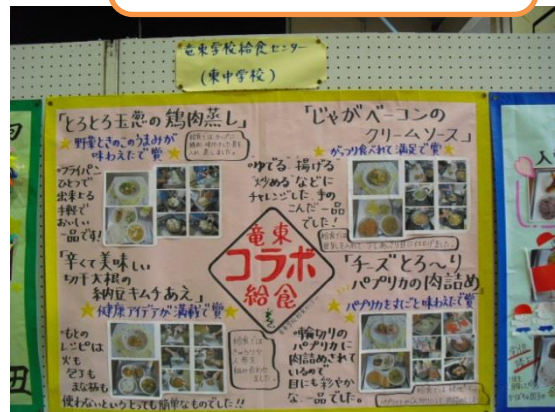 竜東学校給食センター
(東中学校)
「とろとろ玉葱の鶏肉蒸し」
野菜ときのこのうまみが
味わえたで賞
フライパン
ひとつで
出来上る
手軽で
おいしい
一品です!
「じゃがベーコンの
クリームソース」
がっつり食べれて満足で賞
"ゆでる""揚げる"
"炒める"などに
チャレンジした、手の
こんだ一品
でした!
竜東
コラボ
給食
「辛くて美味しい
切干大根の
納豆キムチあえ」
健康アイデアが満載で賞
"もとの
レシピは
火も
包丁も
まな板も
使わないというとっても簡単なものでした!!
「チーズとろ〜り
パプリカの肉詰め」
パプリカをまるごと味わえたで賞
"輪切りの
パプリカに
肉詰めされて
いるので
目にも彩やか
な、一品でした。